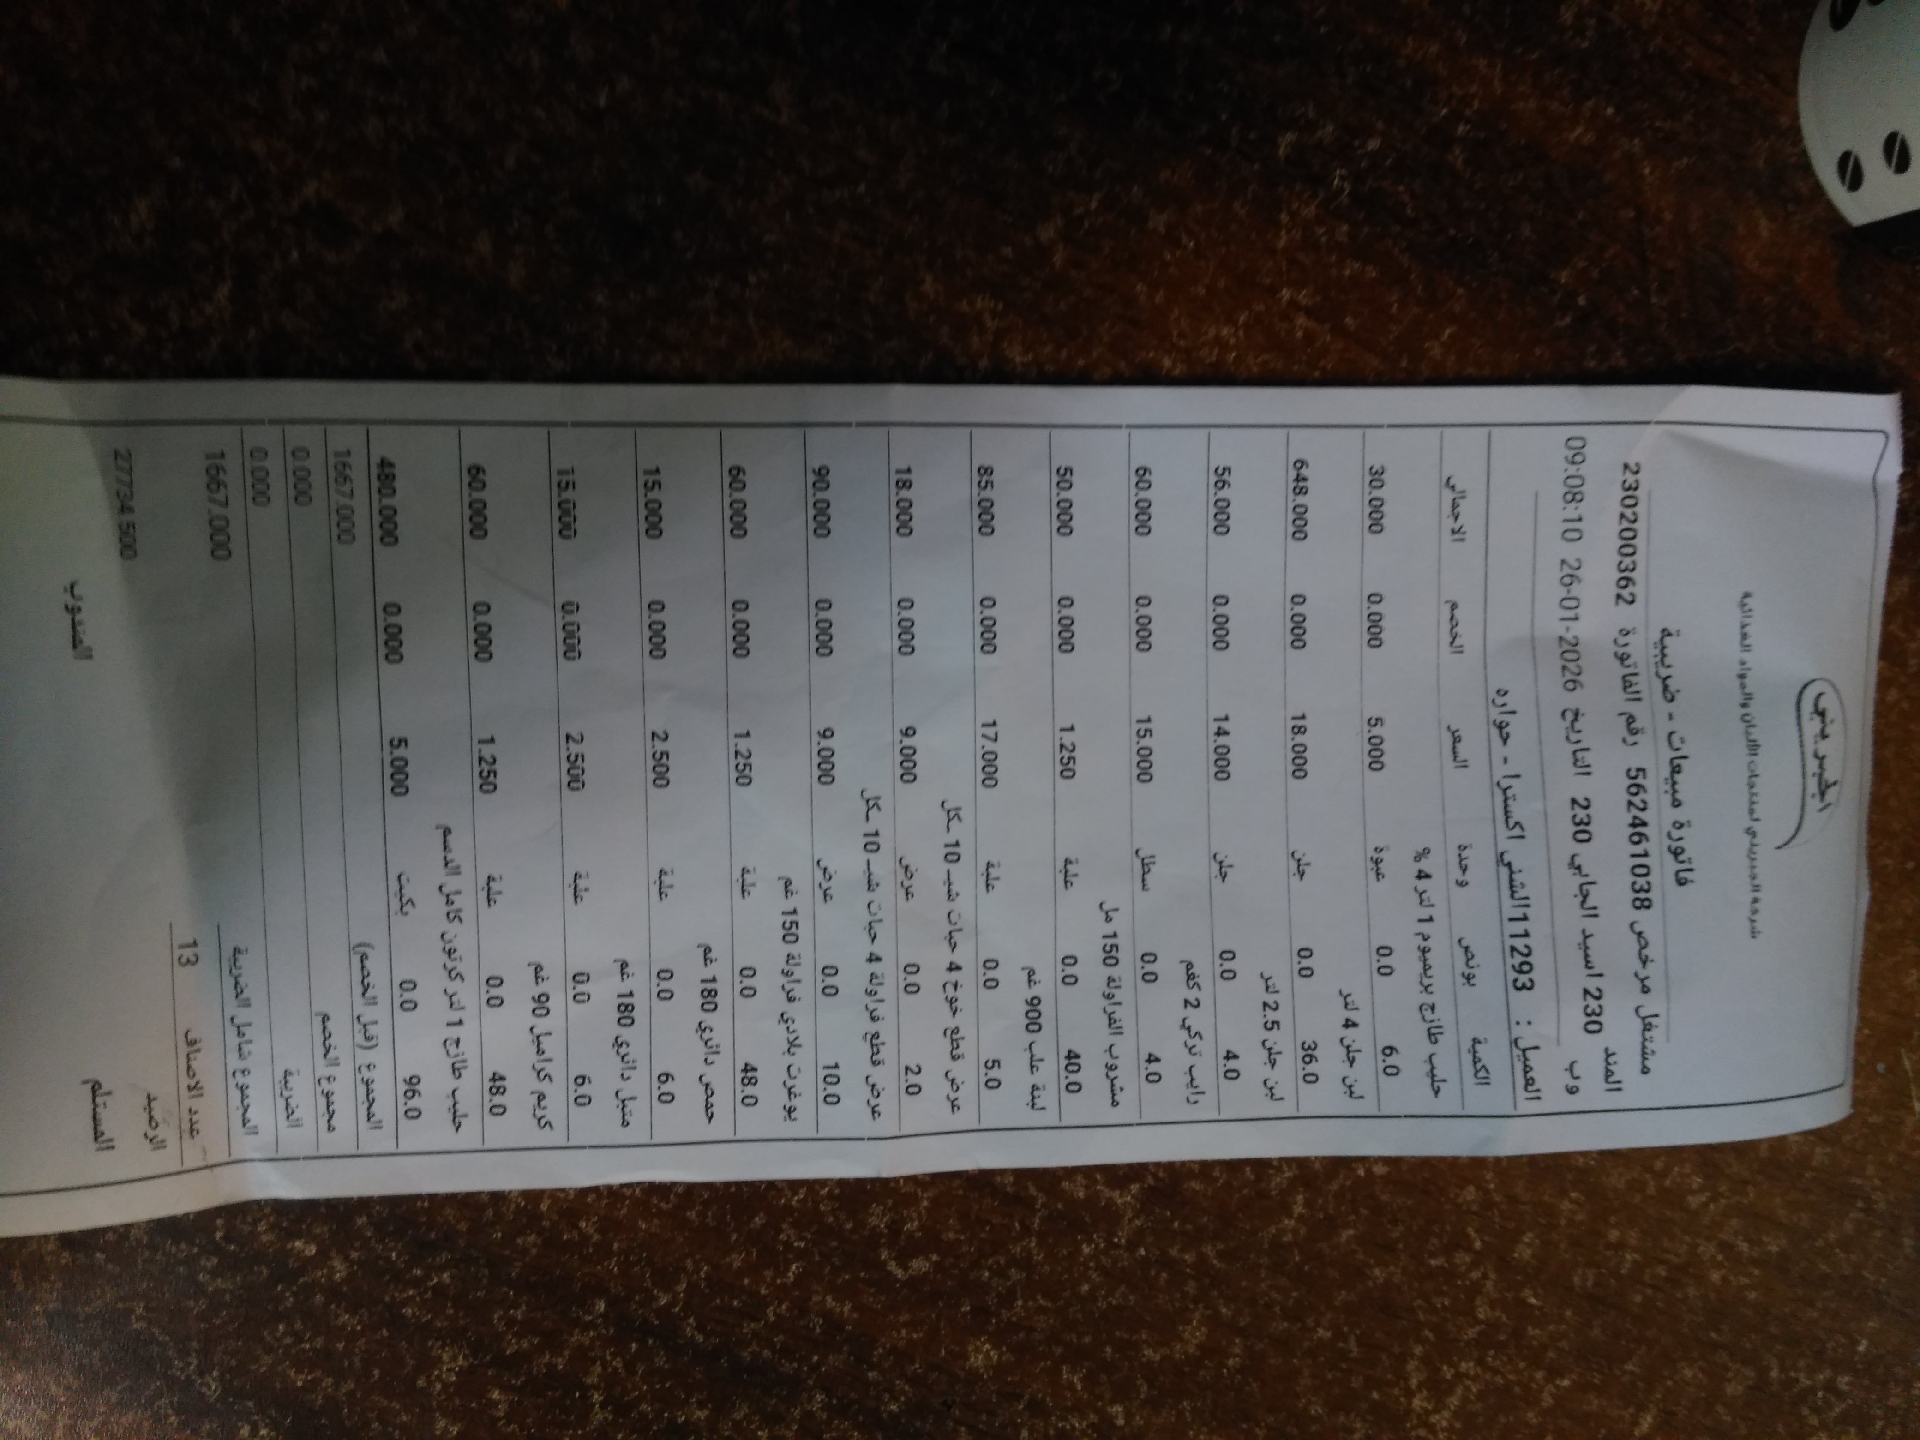 الجبريني
شركة الجبريني لمنتجات الألبان والمواد الغذائية
فاتورة مبيعات - ضريبية
مشتغل مرخص 562461038 رقم الفاتورة 230200362
المند وب 230 اسيد الجابي 230 التاريخ 2026-01-26 09:08:10
العميل : 11293الشني اكسترا - حواره
الكمية بونص وحدة السعر الخصم الاجمالي
حليب طازج بريميوم 1 لتر 4 %
6.0 0.0 عبوة 5.000 0.000 30.000
لبن جلن 4 لتر
36.0 0.0 جلن 18.000 0.000 648.000
لبن جلن 2.5 لتر
4.0 0.0 جلن 14.000 0.000 56.000
رايب تركي 2 كغم
4.0 0.0 سطل 15.000 0.000 60.000
مشروب الفراولة 150 مل
40.0 0.0 علبة 1.250 0.000 50.000
لبنة علب 900 غم
5.0 0.0 علبة 17.000 0.000 85.000
عرض قطع خوخ 4 حبات شيـ 10 ـكل
2.0 0.0 عرض 9.000 0.000 18.000
عرض قطع فراولة 4 حبات شيـ 10 ـكل
10.0 0.0 عرض 9.000 0.000 90.000
يوغرت بلادي فراولة 150 غم
48.0 0.0 علبة 1.250 0.000 60.000
حمص دائري 180 غم
6.0 0.0 علبة 2.500 0.000 15.000
متبل دائري 180 غم
6.0 0.0 علبة 2.500 0.000 15.000
كريم كراميل 90 غم
48.0 0.0 علبة 1.250 0.000 60.000
حليب طازج 1 لتر كرتون كامل الدسم
96.0 0.0 بكيت 5.000 0.000 480.000
المجموع (قبل الخصم) 1667.000
مجموع الخصم 0.000
الضريبة 0.000
المجموع شامل الضريبة 1667.000
عدد الاصناف 13
الرصيد 27734.500
المستلم المندوب